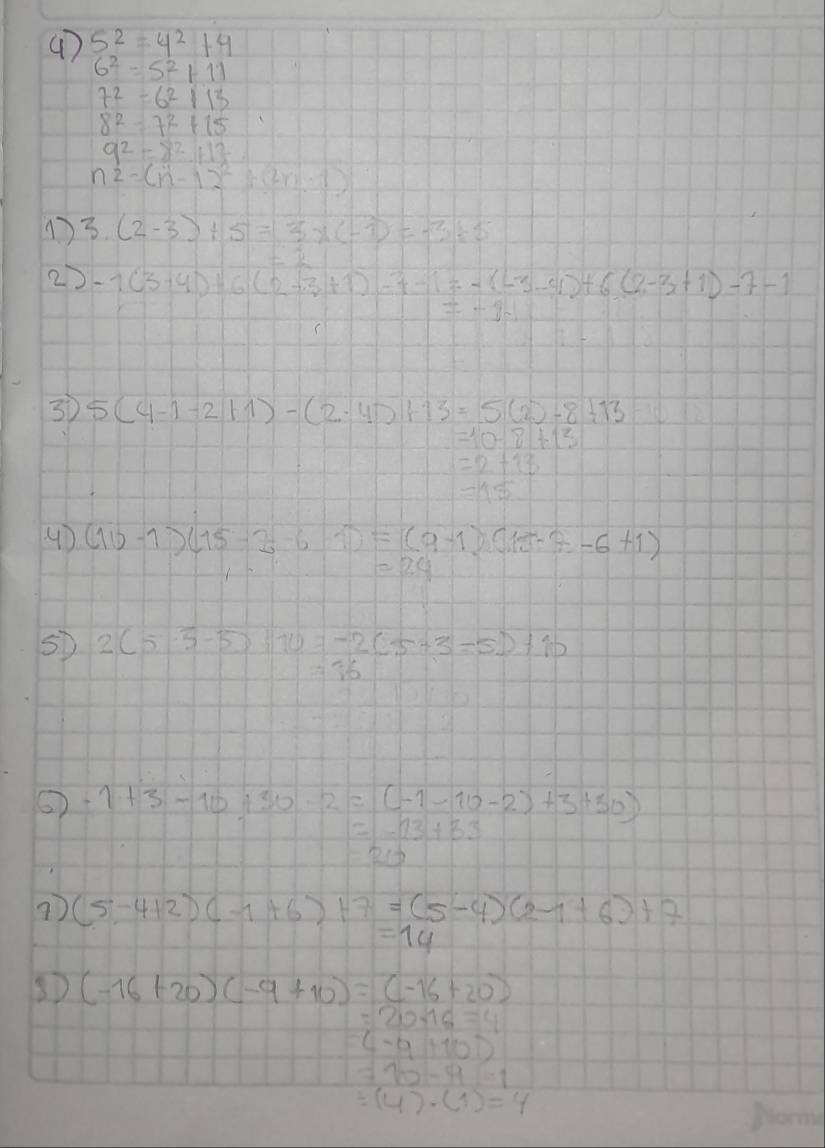 4) 5² = 4² + 9
6² = 5² + 11
7² = 6² + 13
8² = 7² + 15
9² = 8² + 17
n² = (n - 1)² + (2n - 1)
1) 3. (2-3) + 5 = 3 x (-1) = -3 + 5
= 2
2) -1(3-4) + 6(2-3+1) -7-1 = -(-3-4)+6(2-3+1)-7-1
3) 5(4-1-2+1) - (2·4) + 13 = 5(2) - 8 + 13
= 10 - 8 + 13
= 2 + 13
= 15
4) (10-1)(15-7-6 = (9-1) (15-7-6+1)
= 24
5) 2(5 3-5) + 10 = -2(5+3-5)+10
= 16
6) -1 + 3 - 10 + 30 - 2 = (-1-10-2) +3+30)
= -13 + 33
= 20
7) (5-4+2)(-1+6) + 7 = (5-4)(2-1+6)+7
= 14
8) (-16+20)(-9+10) = (-16+20)
= 20-16 = 4
= (-9+10)
= 10-9 = 1
= (4)·(1) = 4
Norma